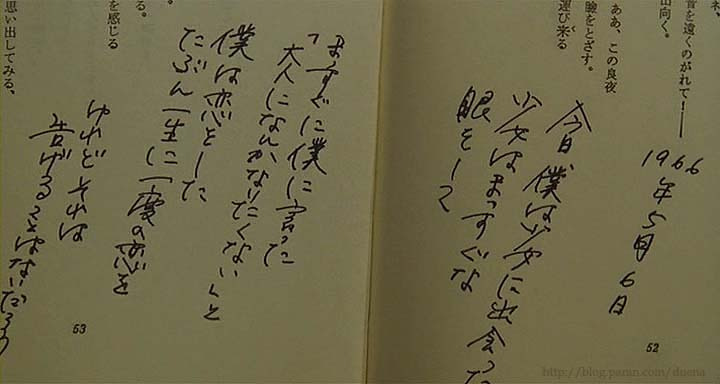 音を遠くのがれて!――
向く。
ああ、この良夜
瞼をとざす。
運び来る
1966年5月6日
今日 僕は少女に出会った
少女はまっすぐな
眼をして
52
まっすぐに僕に言った
「大人になんかなりたくない」と
僕は恋をした
たぶん一生に一度の恋を
けれどそれは
告げることはないだろう
る。
を感じる
思い出してみる、
53
http://blog.paran.com/duena